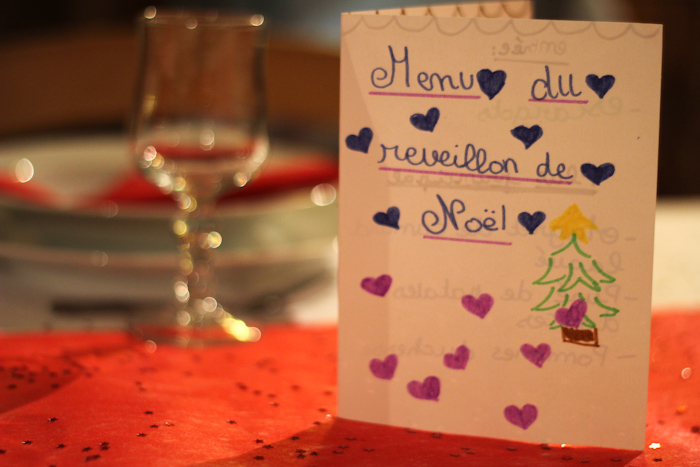 Menu du
reveillon de
Noël